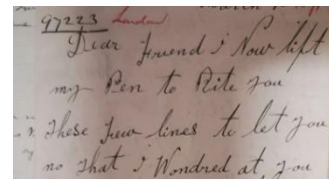 97223 London
Dear Friend i Now lift
my Pen to Rite you
these few lines to let you
no that i Wondred at you